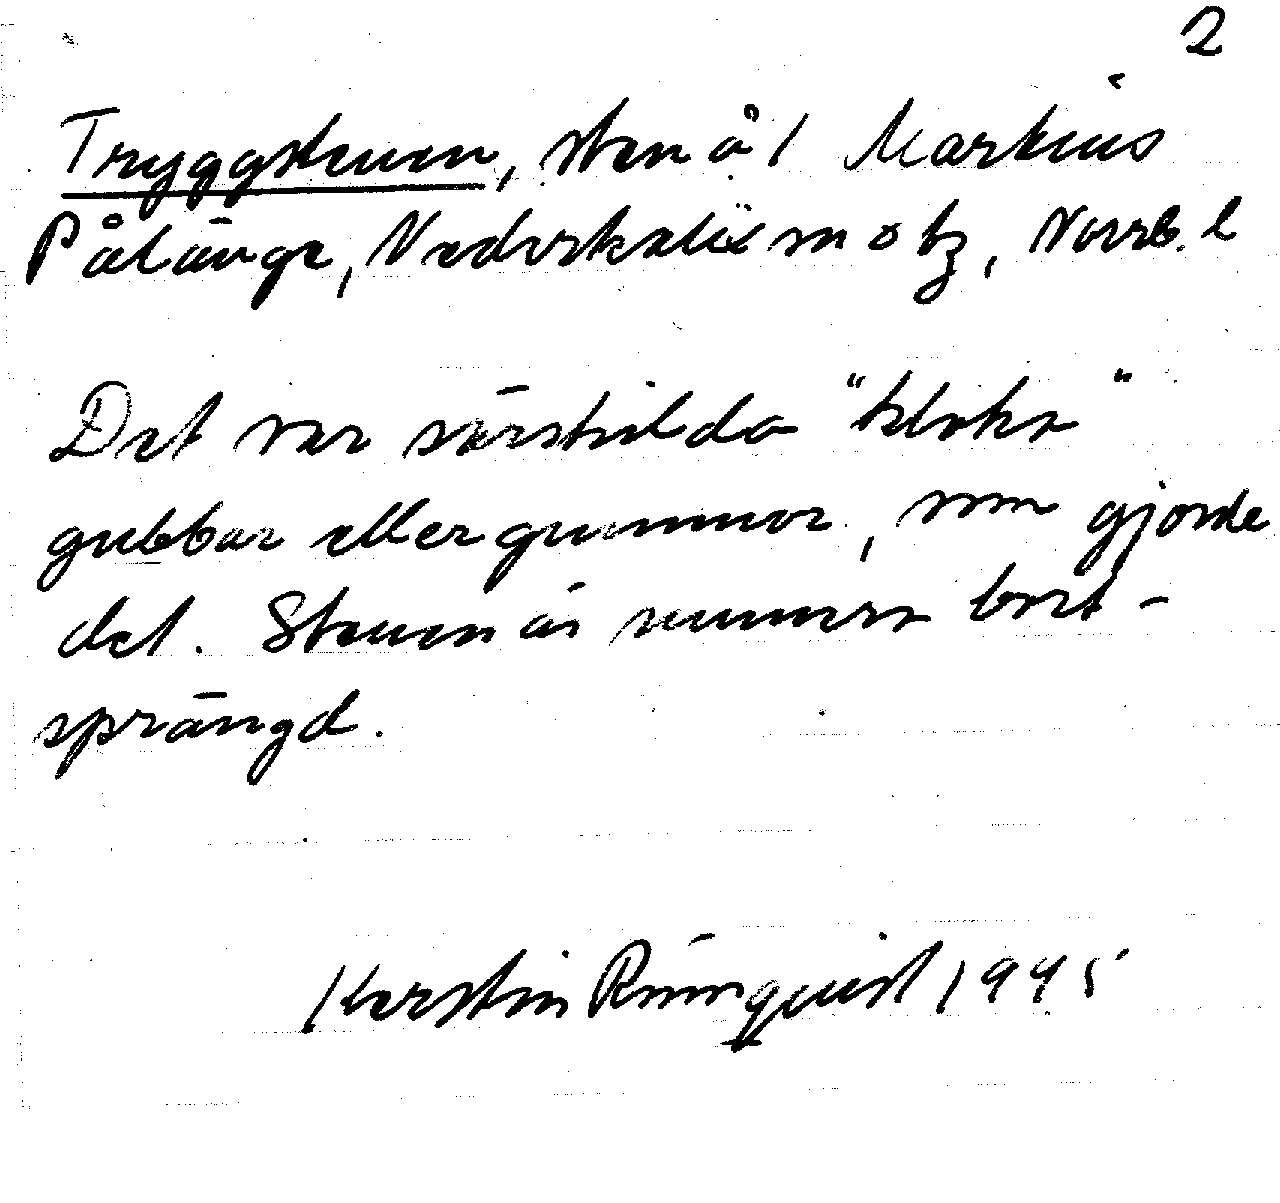 2
Tryggstenen, sten å 1 Markus
Pålänge, Nederkalix sn o tg, Norrb. l
Det var särskilda "kloka"
gubbar eller gummor, som gjorde
det. Stenen är numera bort-
sprängd.
Kerstin Rönnquist 1945